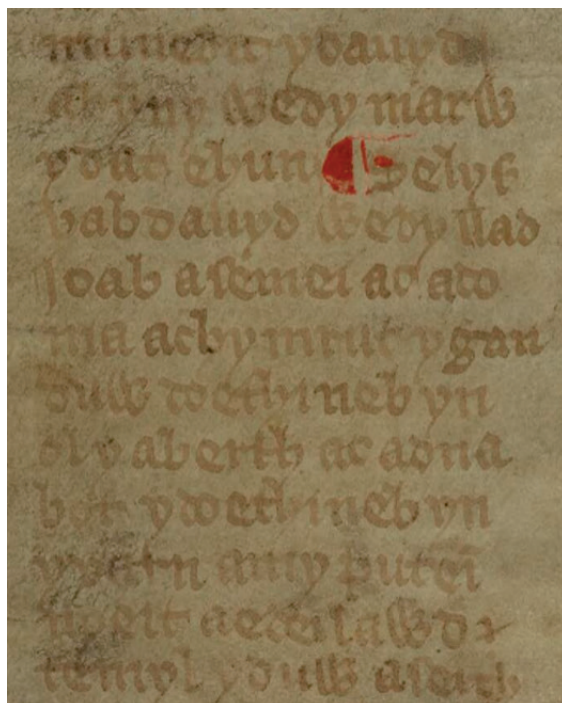 ydauyd
ahūny wedy marw
ydat ehun Selyf
vab dauyd wedy llad
Joab asemei ac ado
nia achymrut ygan
duw doethineb yn
ol y aberth ac adna
bot ydoethineb yn
yvarn puteī
neit aedeilawd
temyl yduw aseith